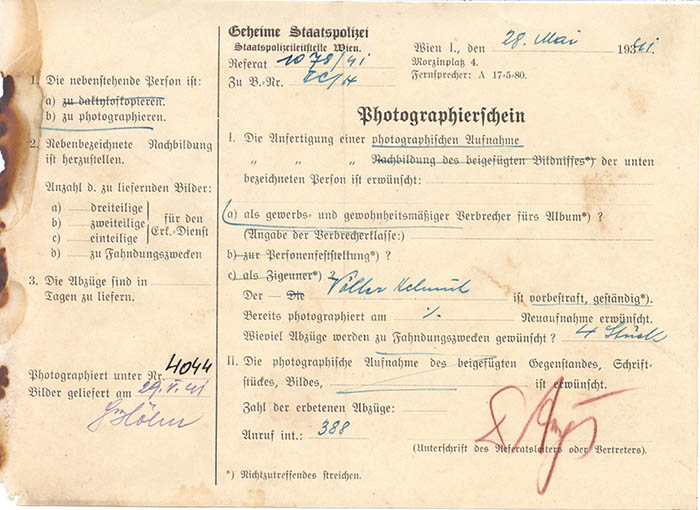 1. Die nebenstehende Person ist:
a) zu daktyloskopieren.
b) zu photographieren.
2. Nebenbezeichnete Nachbildung
ist herzustellen.
Anzahl d. zu liefernden Bilder:
a) — dreiteilige
b) — zweiteilige
c) — einteilige
für den
Erk.-Dienst
d) — zu Fahndungszwecken
3. Die Abzüge sind in
Tagen zu liefern.
Photographiert unter Nr. 4044
Bilder geliefert am 29. V. 41
Geheime Staatspolizei
Staatspolizeileitstelle Wien.
Referat 1078/41
Zu B.-Nr.
Wien I., den 28. Mai 1941.
Morzinplatz 4.
Fernsprecher: A 17-5-80.
Photographierschein
I. Die Anfertigung einer photographischen Aufnahme
„ „ „ Nachbildung des beigefügten Bildnisses*) der unten
bezeichneten Person ist erwünscht:
a) als gewerbs- und gewohnheitsmäßiger Verbrecher fürs Album*) ?
(Angabe der Verbrecherklasse:)
b) zur Personenfeststellung*) ?
c) als Zigeuner*) ?
Der — Die Völler Helmut ist vorbestraft, geständig*).
Bereits photographiert am ./. Neuaufnahme erwünscht.
Wieviel Abzüge werden zu Fahndungszwecken gewünscht ? 4 Stück
II. Die photographische Aufnahme des beigefügten Gegenstandes, Schrift-
stückes, Bildes, ist erwünscht.
Zahl der erbetenen Abzüge:
Anruf int.: 388
(Unterschrift des Referatsleiters oder Vertreters).
*) Nichtzutreffendes streichen.